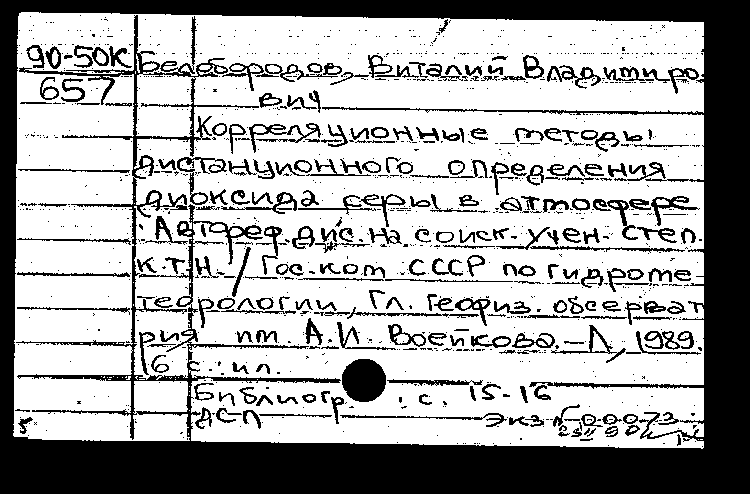 90-50К Белобородов, Виталий Владимиро-
657 вич
Корреляционные методы
дистанционного определения
диоксида серы в атмосфере
: Автореф. дис. на соиск. учен. степ.
к.т.н. / Гос. ком. СССР по гидроме-
теорологии, Гл. геофиз. обсерват
рия им. А.И. Воейкова. – Л, 1989.
16 с.: ил.
Библиогр.: с. 15-16
ДСП Экз № 00073
5